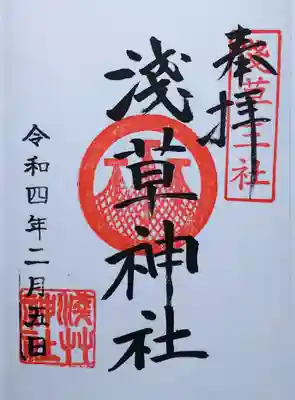 奉拝
淺草三社
淺草神社
令和四年二月五日
淺草神社